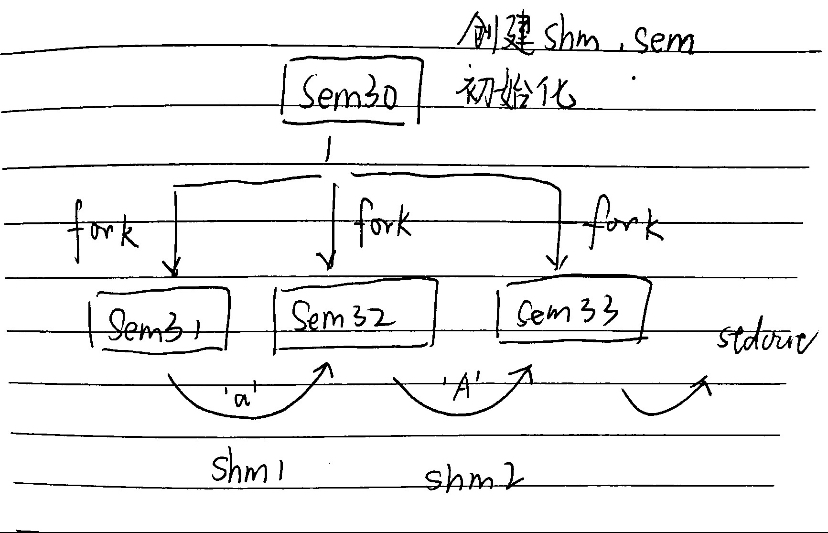 创建shm、sem
sem30
初始化
fork
fork
fork
sem31
sem32
sem33
'a'
'A'
shm1
shm2